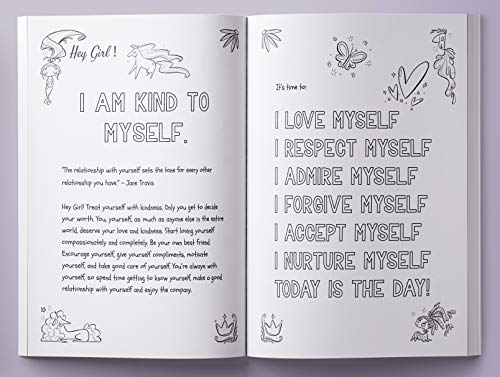 Hey Girl!
I AM KIND TO
MYSELF.
"The relationship with yourself sets the tone for every other
relationship you have." - Jane Travis
Hey Girl! Treat yourself with kindness. Only you get to decide
your worth. You, yourself, as much as anyone else in the entire
world, deserve your love and kindness. Start loving yourself
compassionately and completely. Be your own best friend.
Encourage yourself, give yourself compliments, motivate
yourself, and take good care of yourself. You're always with
yourself, so spend time getting to know yourself, make a good
relationship with yourself and enjoy the company.
It's time to:
I LOVE MYSELF
I RESPECT MYSELF
I ADMIRE MYSELF
I FORGIVE MYSELF
I ACCEPT MYSELF
I NURTURE MYSELF
TODAY IS THE DAY!